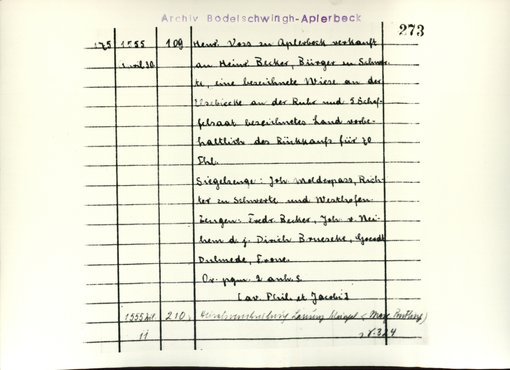 Archiv Bodelschwingh-Aplerbeck
273
175 1555 109 Henr. Voss zu Aplerbeck verkauft
April 30. an Heinr. Becker, Bürger zu Schwer-
te, eine bezeichnete Wiese an der
an der Ruhr und 5 Schef-
felsaat bezeichnetes Land vorbe-
haltlich des Rückkaufs für 70
Thl.
Siegelzeuge: Joh. Molderpass, Rich-
ter zu Schwerte und Westhofen
Zeugen: Fredr. Becker, Joh. v. Nei-
hem d. j. Dirich Bruescke, Goerdt
Dulmede, Frone.
Or. pgm. 2 anh. S.
[av. Phil. et Jacobi]
1555 210.
11